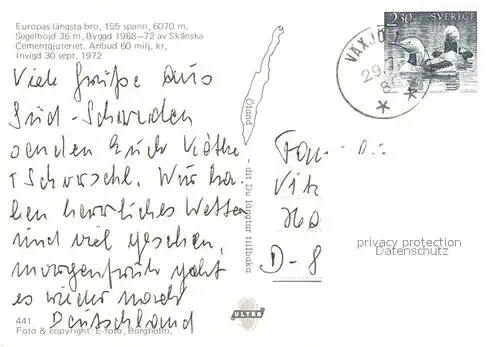 Europas längsta bro, 155 spann, 6070 m,
Segelhöjd 36 m, Byggd 1968–72 av Skånska
Cementgjuteriet. Anbud 60 milj. kr,
Invigd 30 sept. 1972
2.30 SVERIGE
VÄXJÖ 1
29.7.
Viele Grüße aus
Süd-Schweden
senden Euch Käthe
Wir ha-
ben herrliches Wetter
und viel gesehen,
morgen früh geht
es wieder nach
Deutschland
Öland - dit Du längtar tillbaka
Fam.
D-8
privacy protection
Datenschutz
441
Foto & copyright: E-foto, Borgholm.
ULTRA